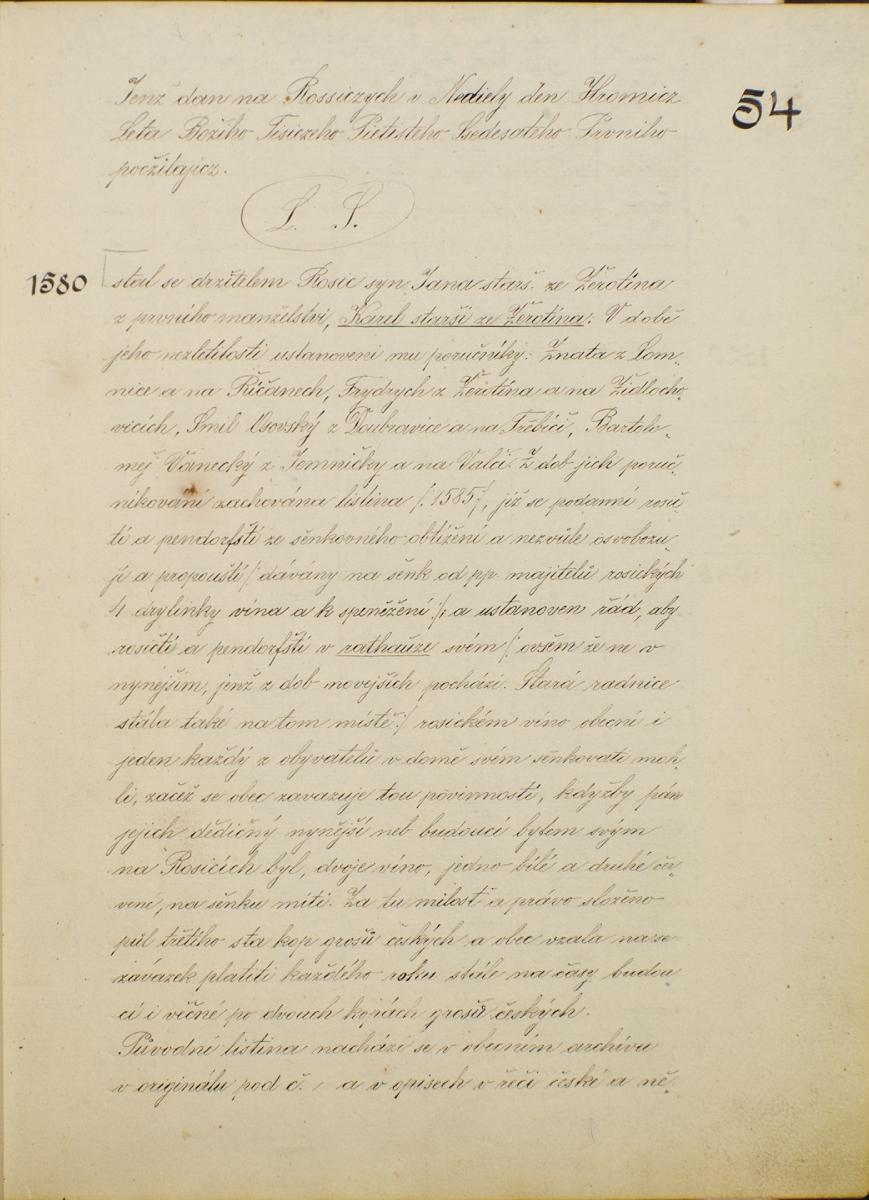 54
Jenž dan na Rossiczych v Nediely den Hromicz
Leta Božiho Tisiczeho Pietisteho Ssedesateho Prvniho
počzitajicz.
L. S.
1580
stal se držitelem Rosic syn Jana starš. ze Žerotína
z prvního manželství, Karel starší ze Žerotína. V době
jeho nezletilosti ustanoveni mu poručníky: Znata z Lom-
nice a na Říčanech, Frydrych z Žerotína a na Židlocho-
vicích, Smil Osovský z Doubravice a na Třebíči, Bartolo-
měj Vanecký z Jemničky a na Valči. Z dob jich poruč-
níkování zachována listina /:1585/, jíž se poddaní rosič-
tí a pendorfští ze šenkovného obtížení a nezvůle osvobozu-
jí a propouští /:dávány na šenk od pp. majitelů rosických
4 drylinky vína a k speněžení:/, a ustanoven řád, aby
rosičtí a pendorfští v rathauze svém /:ovšem že ne v
nynějším, jenž z dob novejších pochází. Stará radnice
stála také na tom místě:/ rosickém víno obecní i
jeden každý z obyvatelů v domě svém šenkovati moh-
li, začž se obec zavazuje tou povinností, kdyžby pán
jejich dědičný nynější neb budoucí bytem svým
na Rosicích byl, dvoje víno, jedno bílé a druhé čer-
vené, na šenku míti. Za tu milost a právo složeno
půl třetího sta kop grošů českých a obec vzala na se
závazek platiti každého roku stále na časy budou-
cí i věčné po dvouch kopách grošů českých.
Původní listina nachází se v obecním archivu
v originálu pod č. , a v opisech v řeči české a ně-